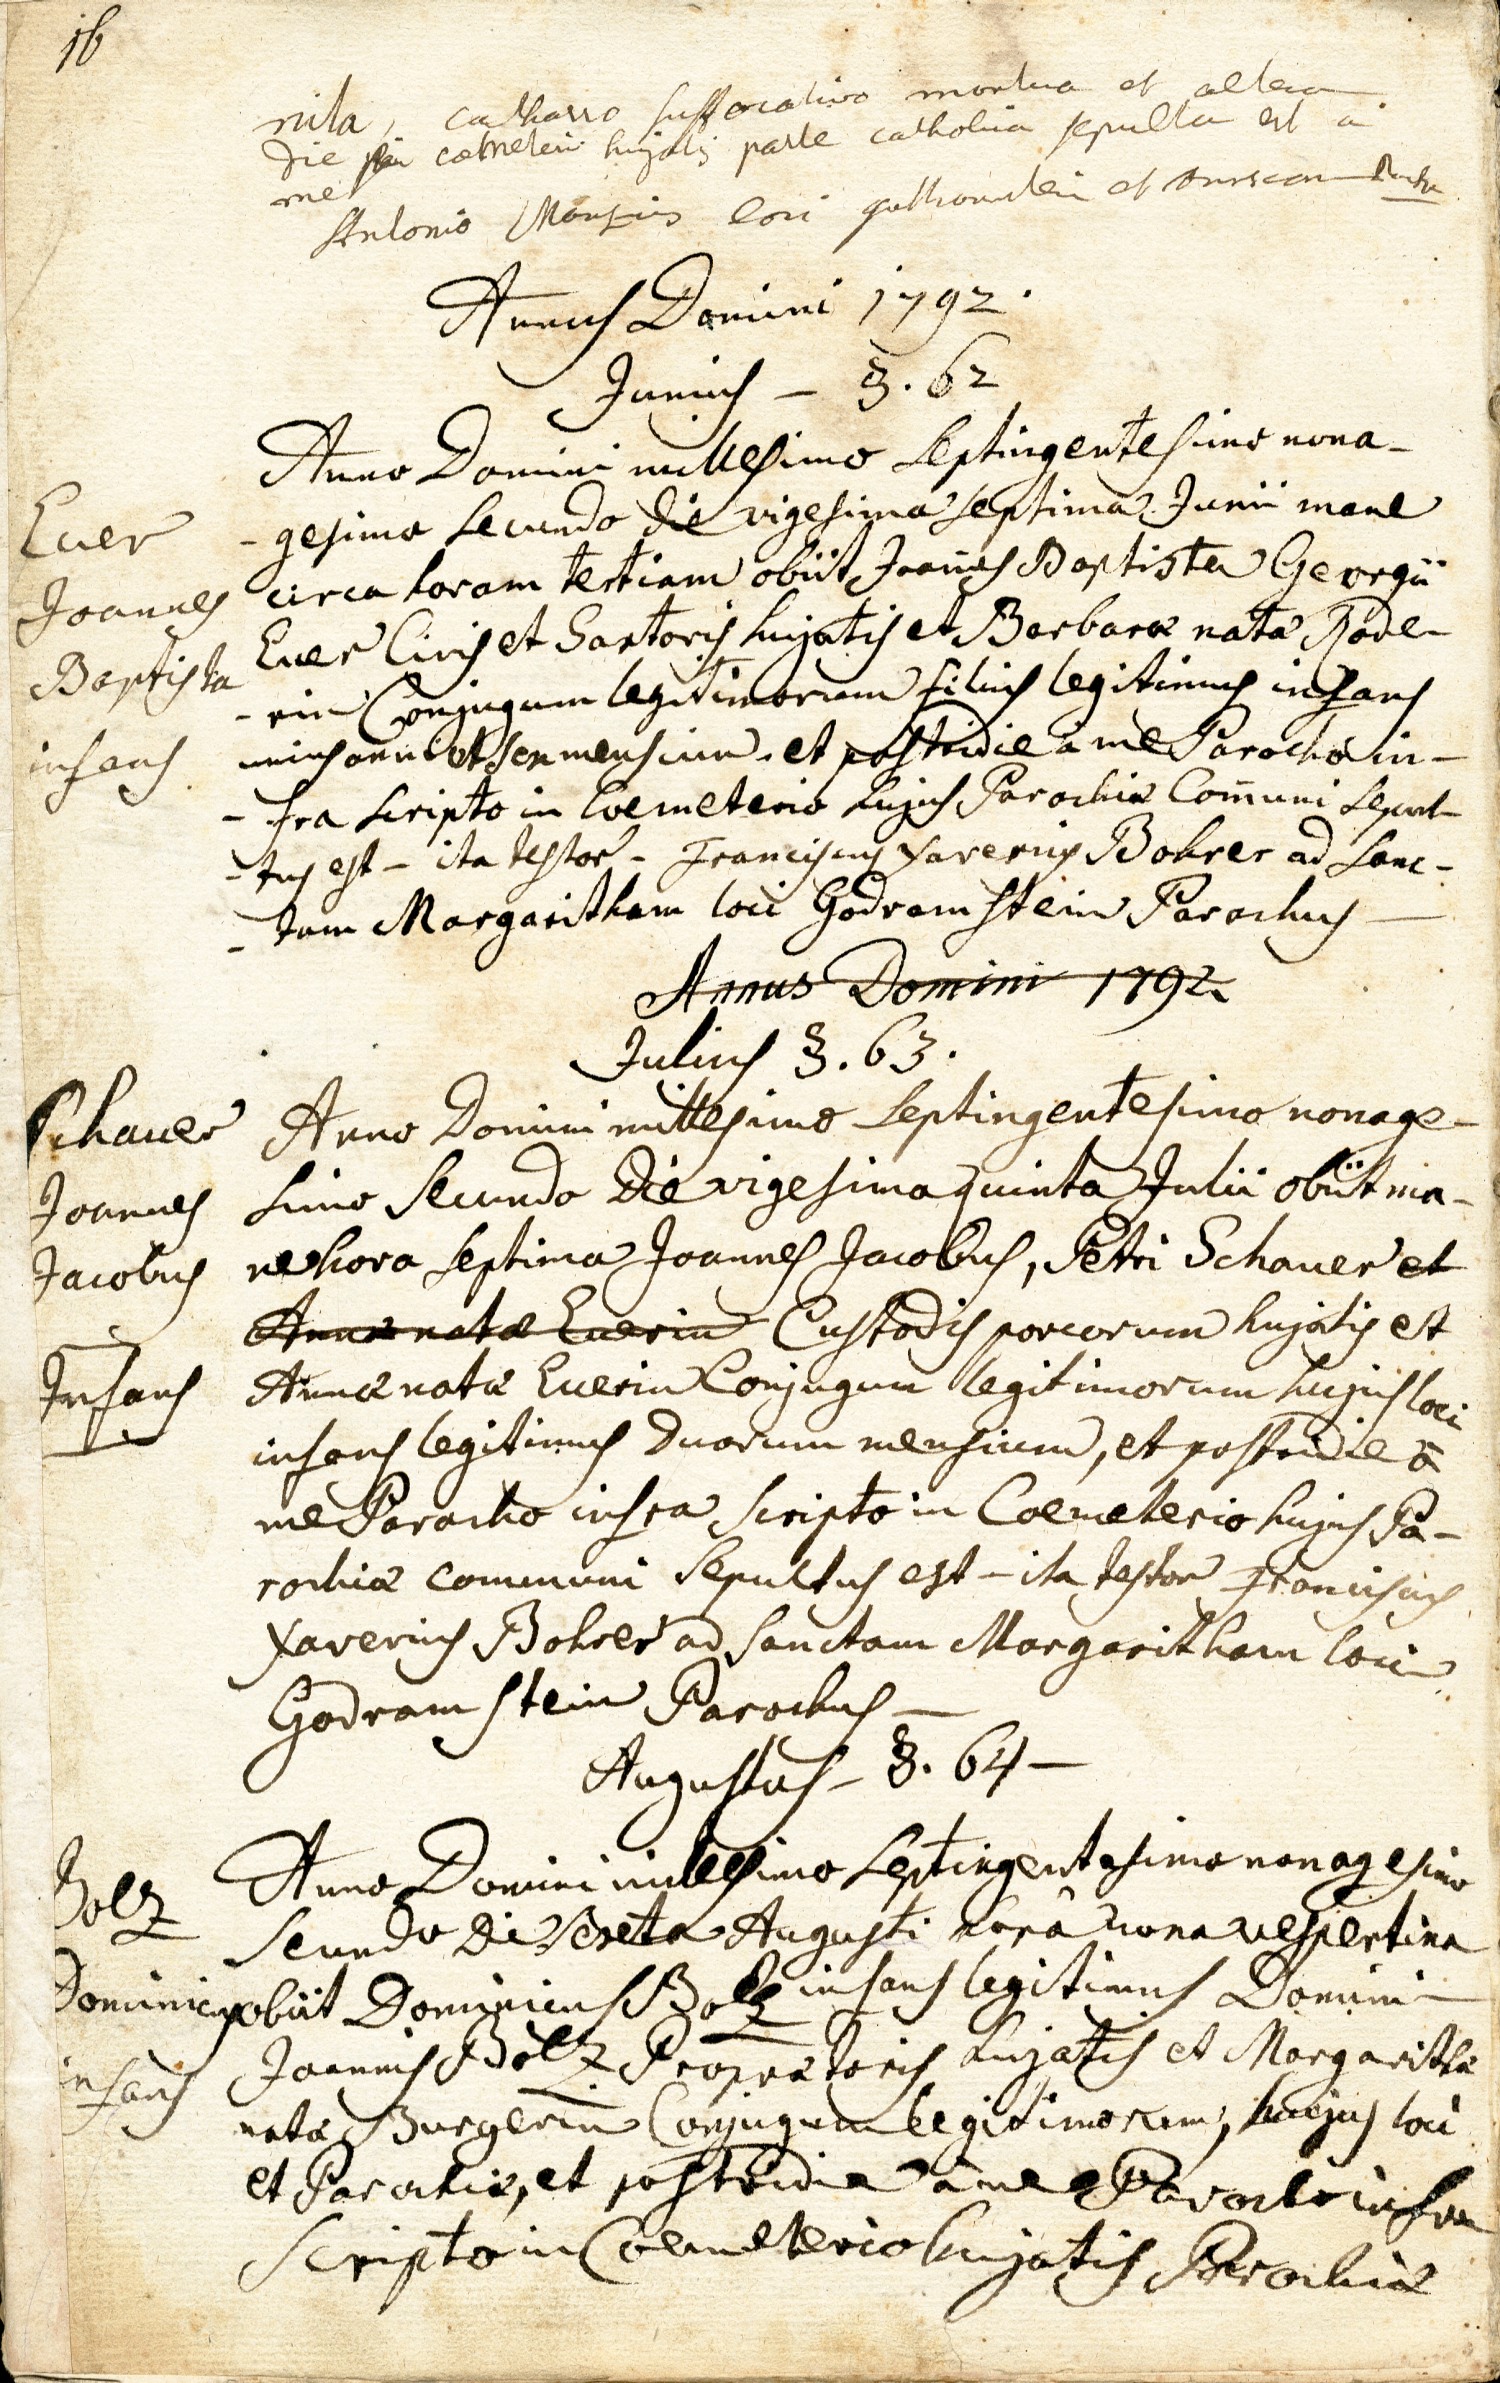 16
nita, catharro suffocativo mortua et altera
die in coemeterii hujatis parte catholica sepulta est a
me
Antonio loci et
Annus Domini 1792.
Junius – §. 62
Anno Domini millesimo septingentesimo nona-
Euer
- gesimo secundo die vigesima septima Junii mane
Joannes
circa horam tertiam obiit Joannes Baptista Georgii
Baptista
Euer Civis et Sartoris hujatis et Barbarae natae Rode-
- rin Conjugum legitimorum filius legitimus infans
infans
unius anni et sex mensium. et postridie a me Parocho in-
- fra scripto in Coemeterio hujus Parochiae Com̄uni sepul-
- tus est – ita testor – Franciscus Xaverius Bohrer ad Sanc-
- tam Margaritham loci Godramstein Parochus —
Annus Domini 1792.
Julius §. 63.
Schauer
Anno Domini millesimo septingentesimo nonage-
Joannes
simo secundo die vigesima quinta Julii obiit ma-
Jacobus
ne hora septima Joannes Jacobus, Petri Schauer et
Annae natae Euerin Custodis porcorum hujatis et
Infans
Annae natae Euerin Conjugum legitimorum hujus loci
infans legitimus duorum mensium, et postridie à
me Parocho infra scripto in Coemeterio hujus Pa-
rochiae communi sepultus est – ita testor Franciscus
Xaverius Bohrer ad Sanctam Margaritham loci
Godramstein Parochus —
Augustus – §. 64 –
Bolz
Anno Domini millesimo septingentesimo nonagesimo
secundo die sexta Augusti hora nona vespertina
Dominicus
obiit Dominicus Bolz infans legitimus Domini
infans
Joannis Bolz Propraetoris hujatis et Margarithae
natae Burgerin Conjugum legitimorum, hujus loci
et Parochiae, et postridie a me Parocho infra
scripto in Coemeterio hujatis Parochiae